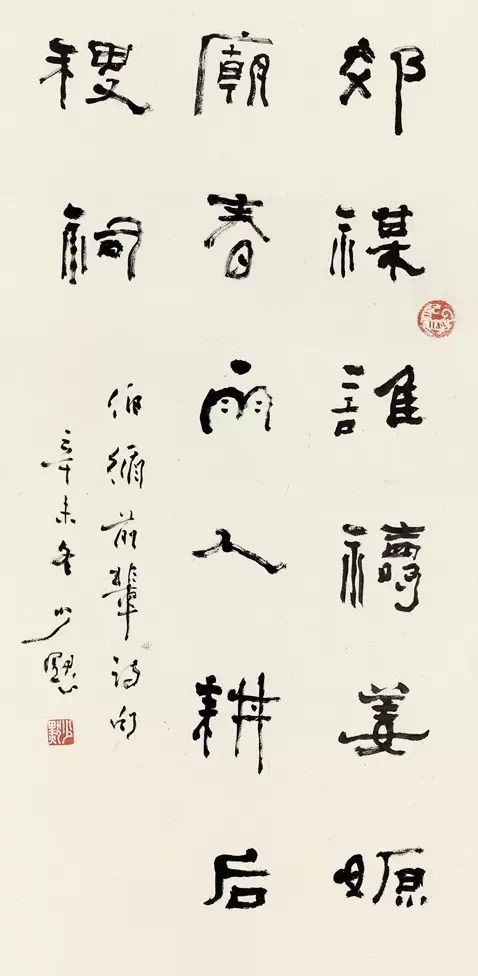 郊禖誰禱姜嫄
廟春雨人耕后
稷祠
伯循前輩詩句
辛未冬少默
少默